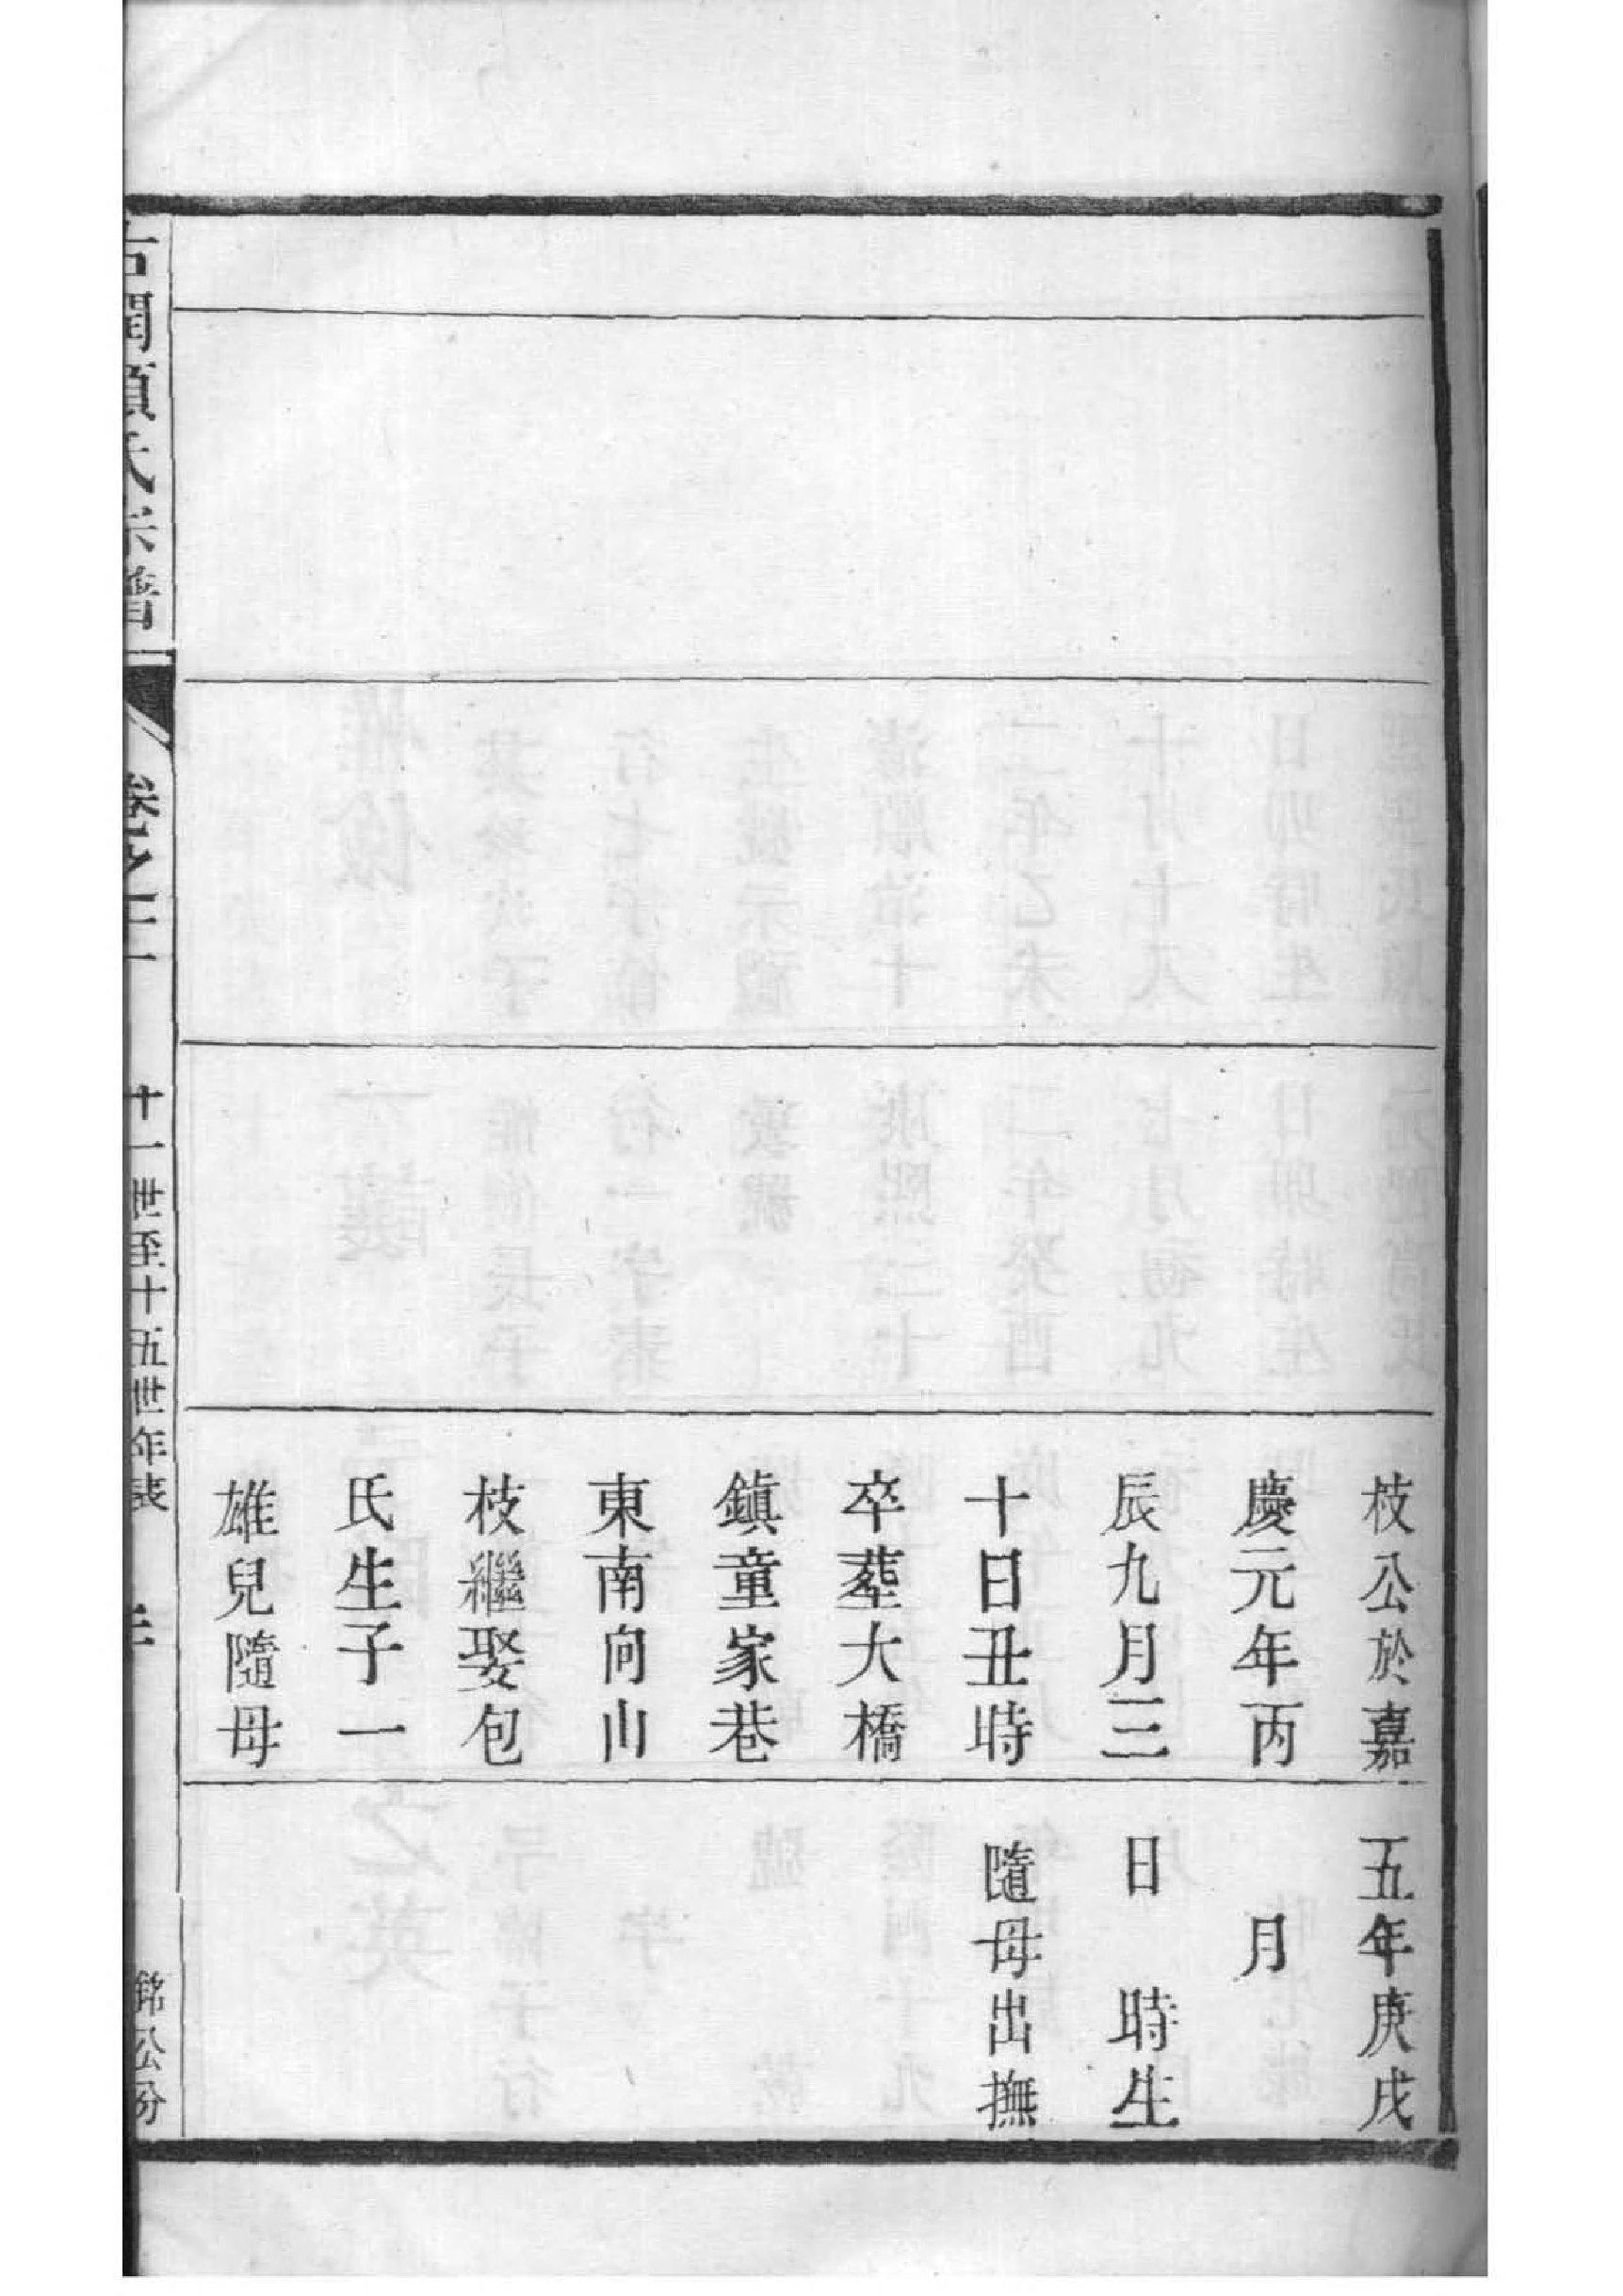 枝公於嘉
慶元年丙
辰九月三
十日丑時
卒塟大橋
鎮童家巷
東南向山
枝繼娶包
氏生子一
雄兒隨母
五年庚戌
月
日 時生
隨母出撫
氏宗譜
卷之十二
十一世至十五世年表
銘公分